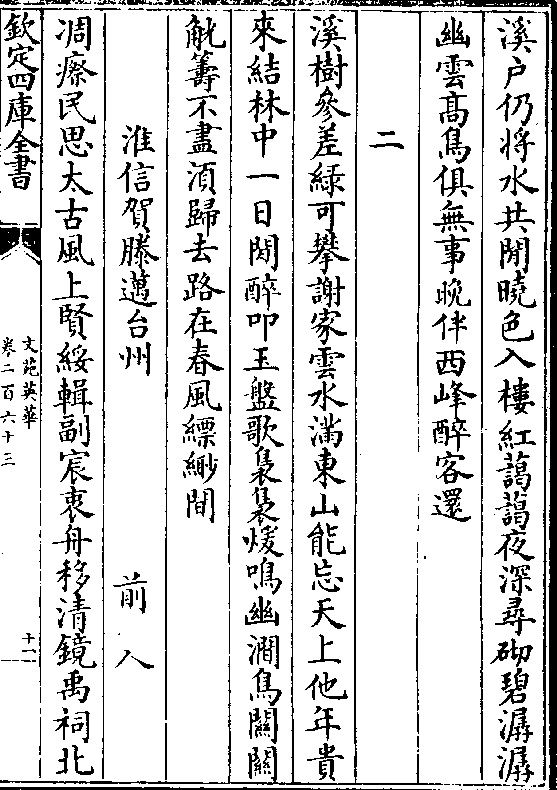 溪户仍将水共閒曉色入樓紅藹藹夜深尋砌碧潺潺
幽雲髙鳥俱無事晩伴西峰醉客還
二
溪樹參差緑可攀謝家雲水滿東山能忘天上他年貴
來結林中一日閑醉叩玉盤歌裊裊煖鳴幽澗鳥闗闗
觥籌不盡須歸去路在春風縹緲間
淮信賀滕邁台州 前人
凋瘵民思太古風上賢綏輯副宸衷舟移清鏡禹祠北
欽定四庫全書
文苑英華
卷二百六十三
十一